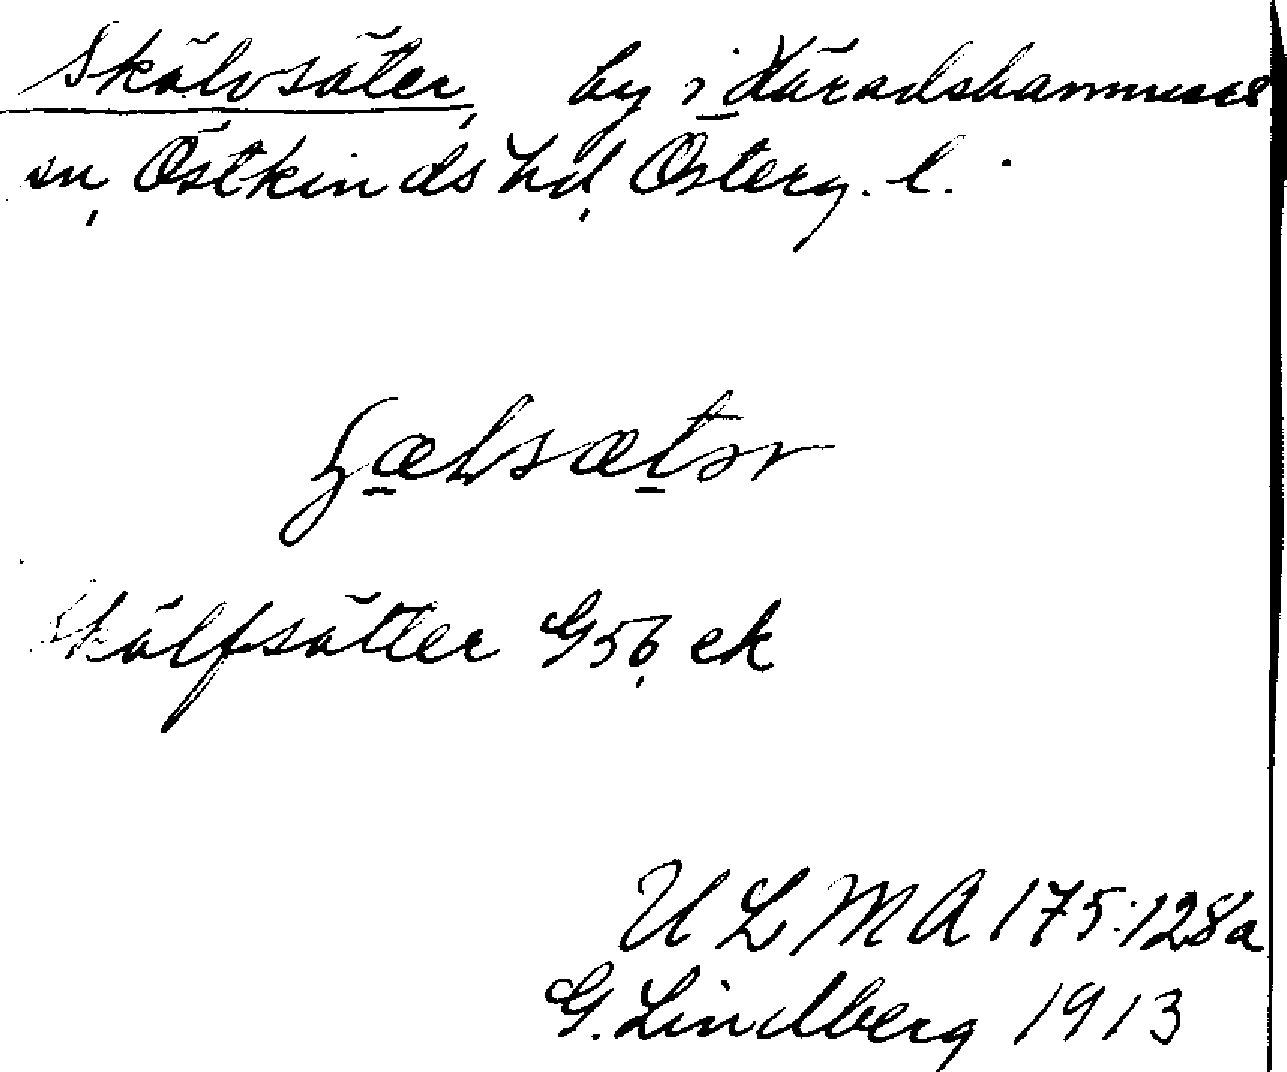 Skälvsäter, by i Häradshammars
sn, Östkinds hd, Österg. l.
Skälfsätter G56, ek
ULMA 175:128a
G. Lindberg 1913